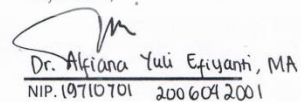 Dr. Alfiana Yuli Efiyanti, MA
NIP. 19710701 2006042001